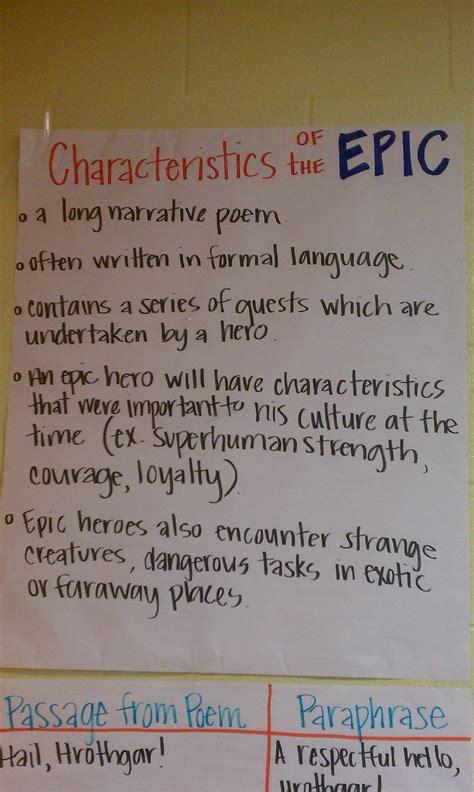 Characteristics OF the EPIC
• a long narrative poem
• often written in formal language.
• contains a series of quests which are
undertaken by a hero.
• An epic hero will have characteristics
that were important to his culture at the
time (ex. Superhuman strength,
courage, loyalty)
• Epic heroes also encounter strange
creatures, dangerous tasks in exotic
or faraway places.
Passage from Poem
Paraphrase
Hail, Hrothgar!
A respectful hello,
Hrothgar!